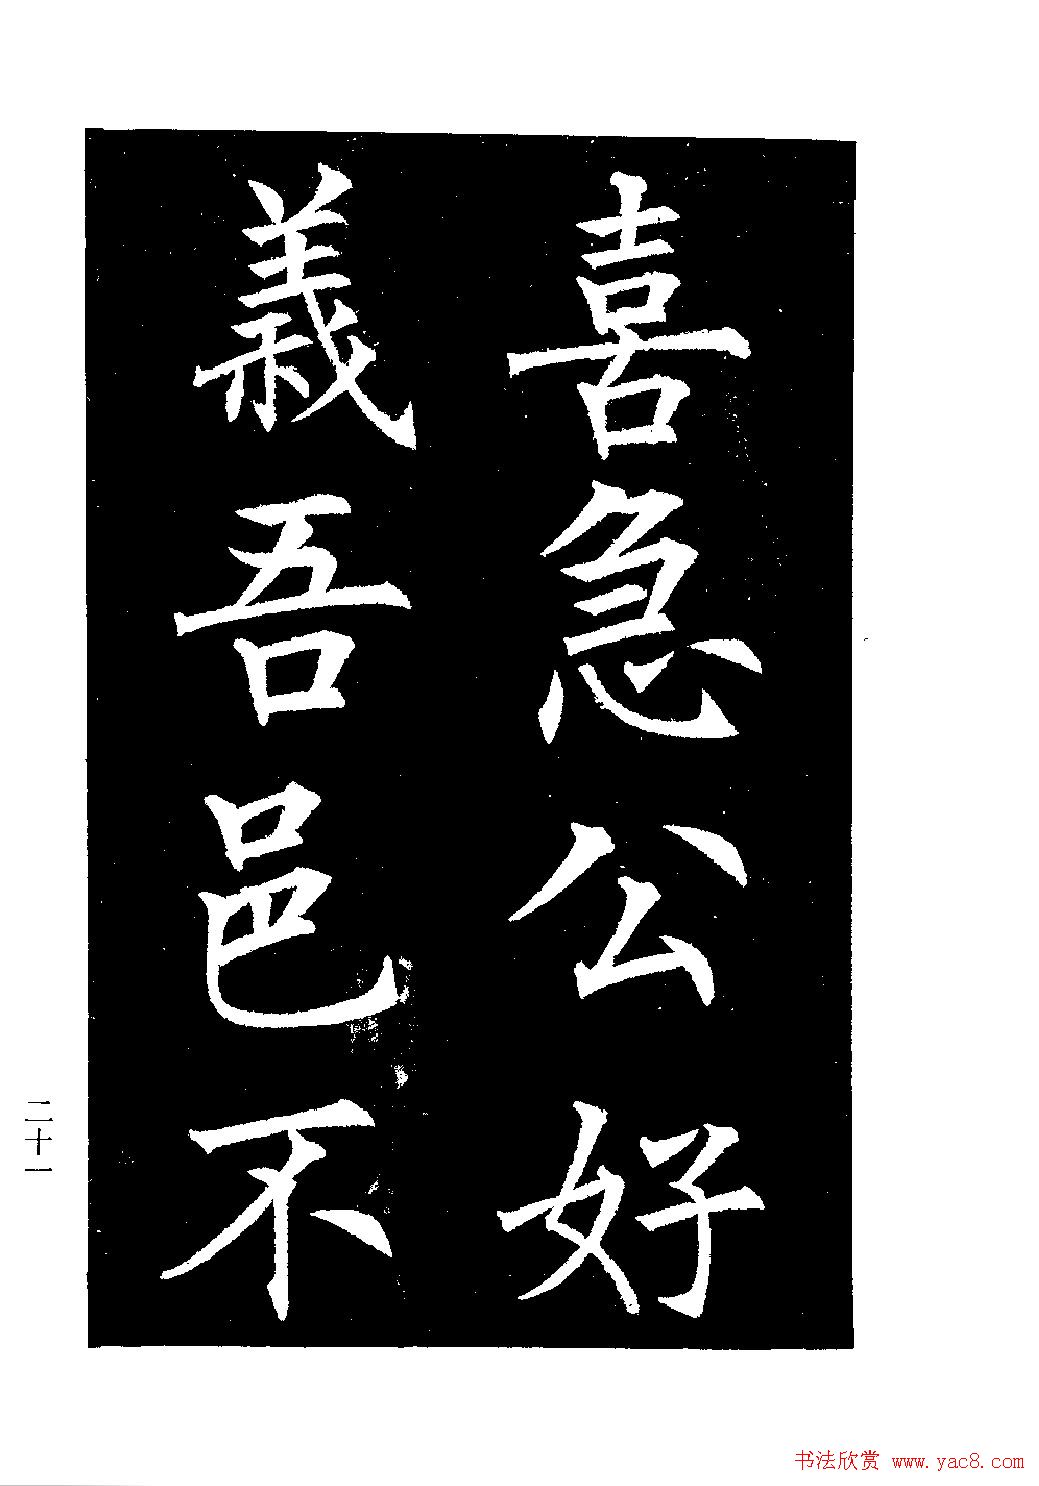 喜急公好
義吾邑不
二十一
书法欣赏 www.yac8.com